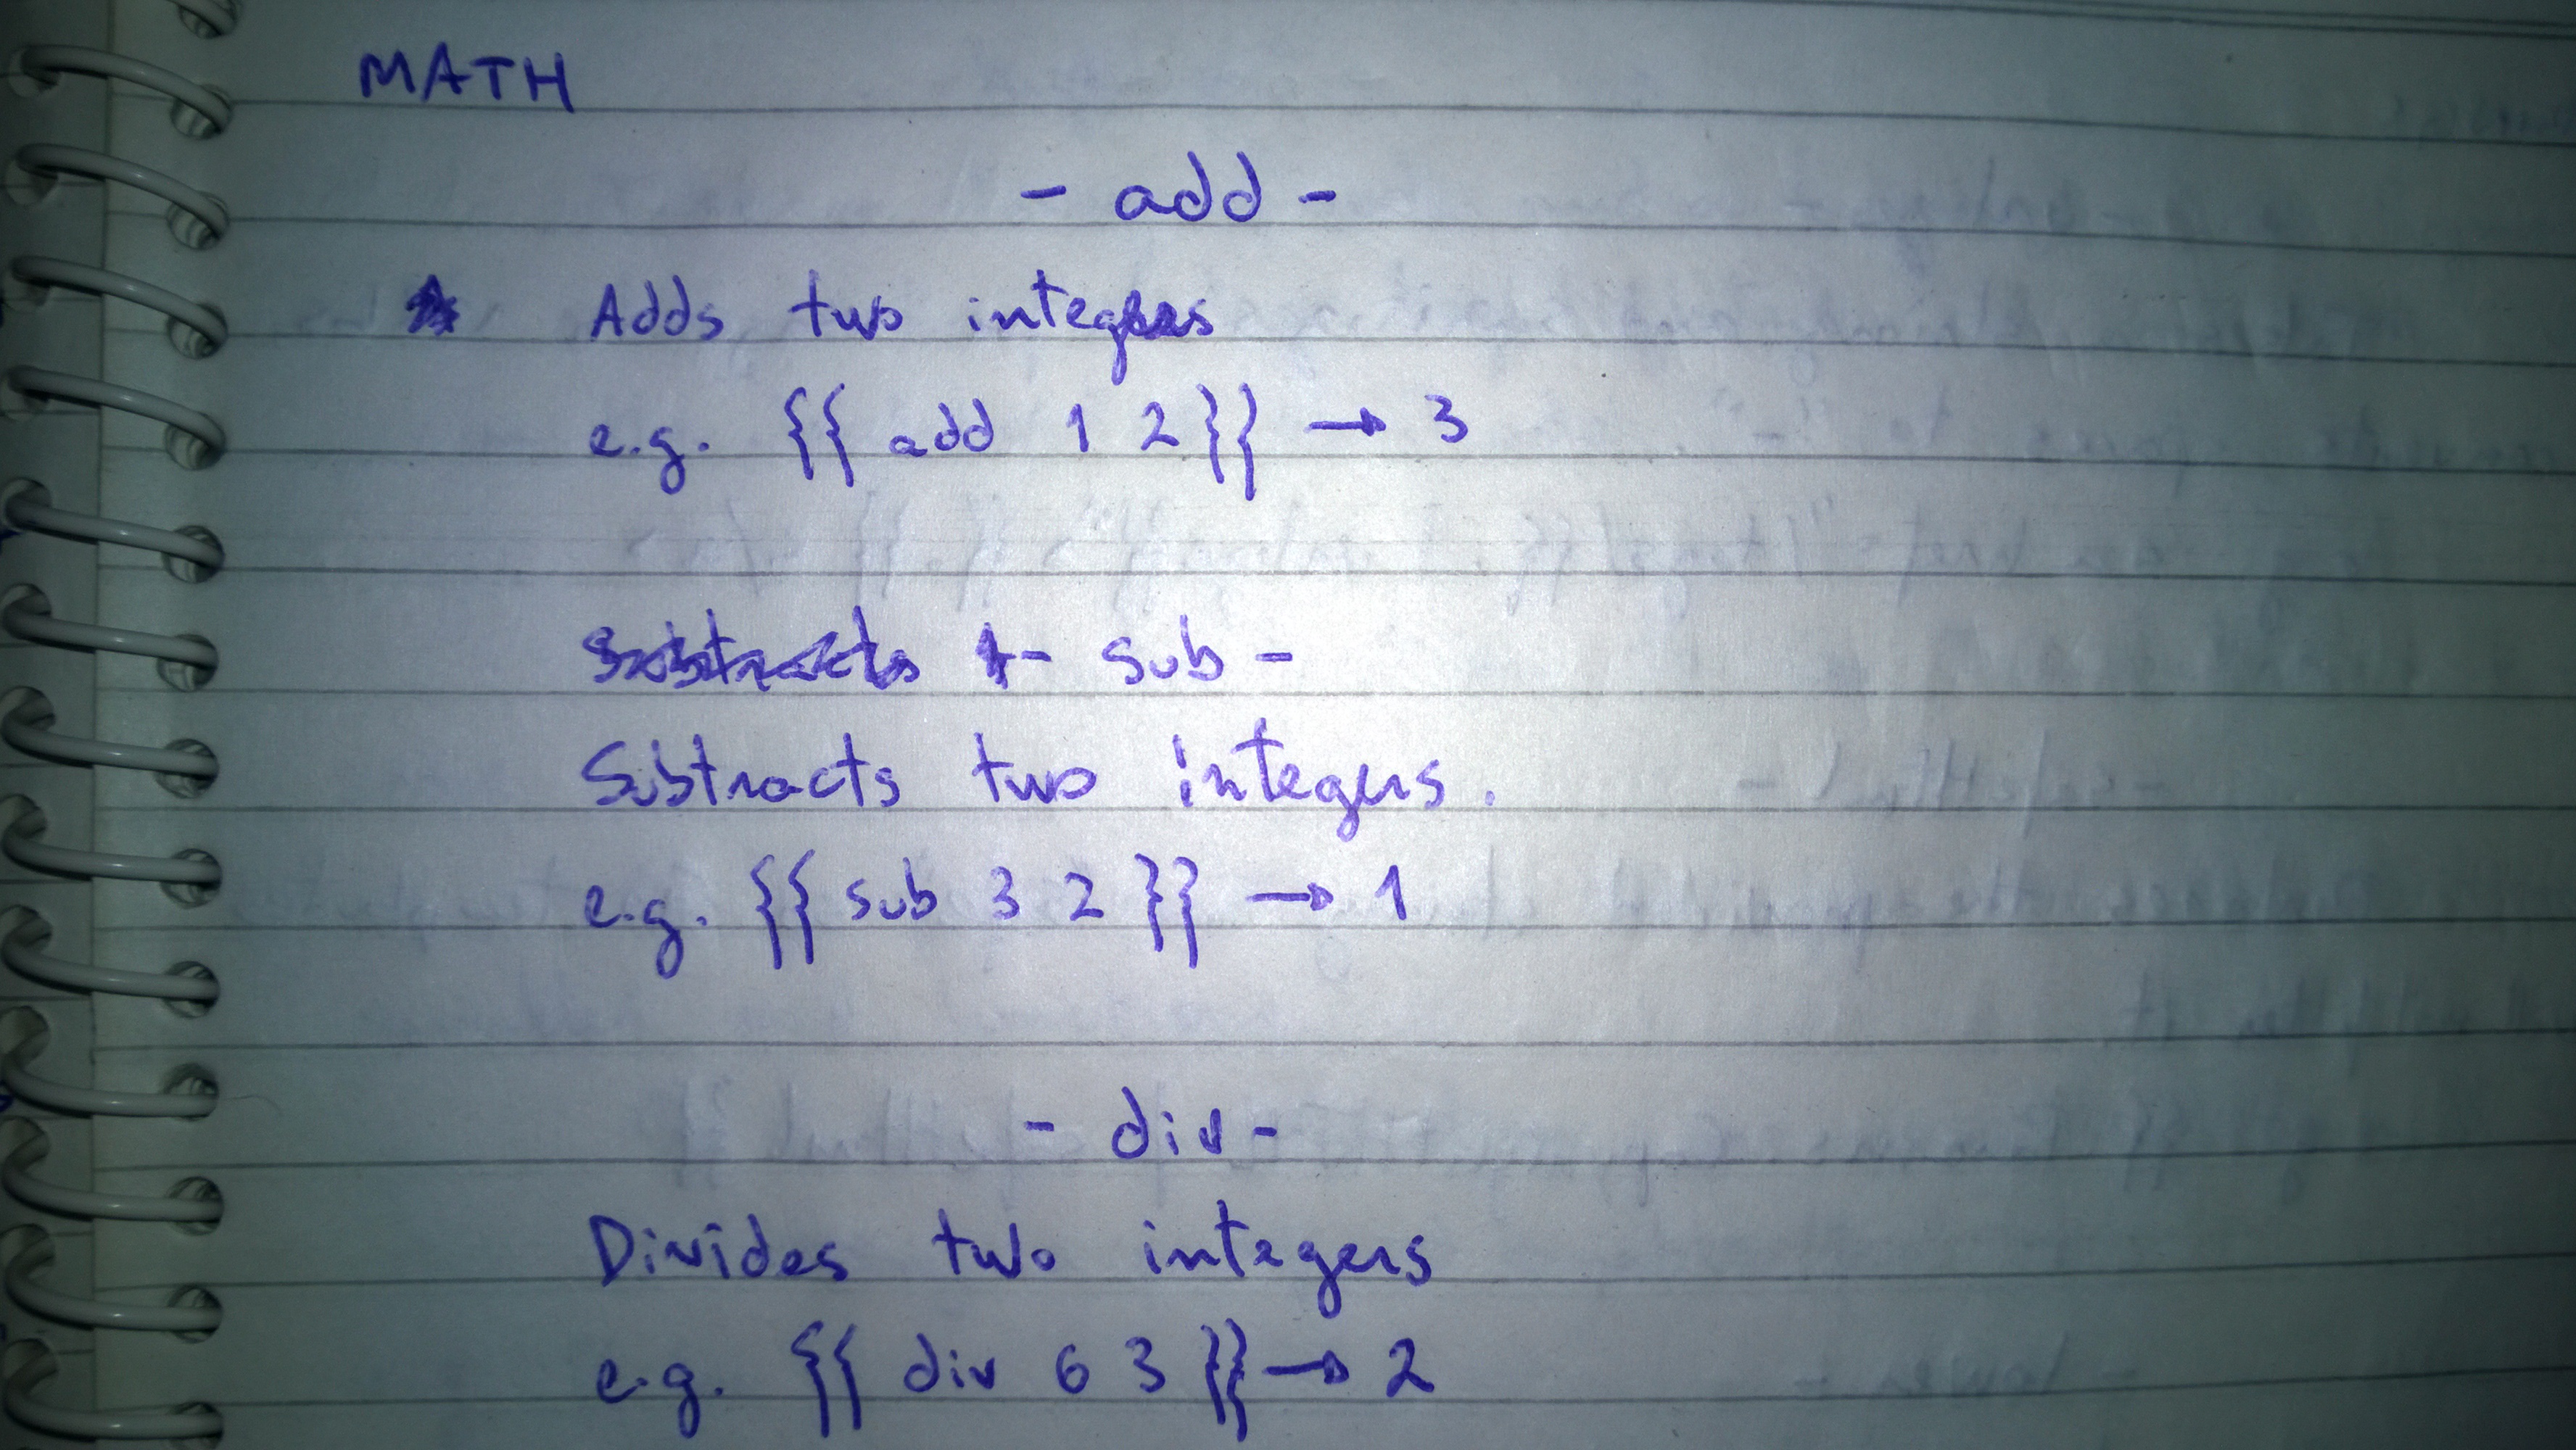 MATH
- add -
Adds two integers
e.g. {{ add 1 2 }} → 3
- sub -
Substracts two integers.
e.g. {{ sub 3 2 }} → 1
- div -
Divides two integers
e.g. {{ div 6 3 }} → 2